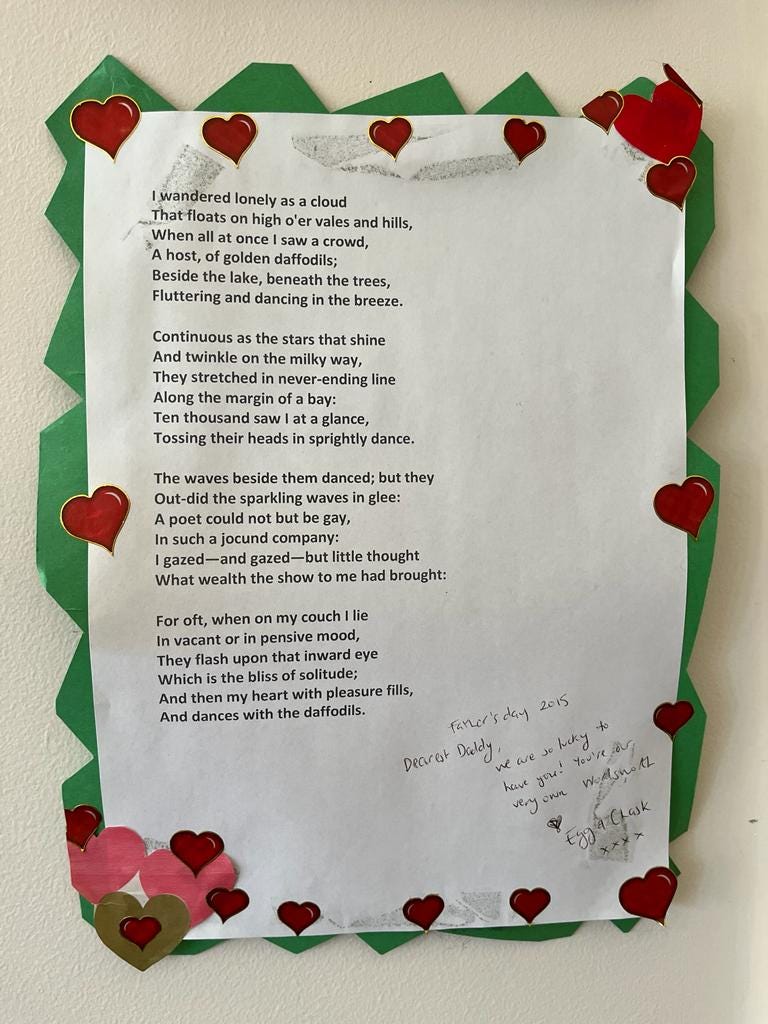 I wandered lonely as a cloud
That floats on high o'er vales and hills,
When all at once I saw a crowd,
A host, of golden daffodils;
Beside the lake, beneath the trees,
Fluttering and dancing in the breeze.
Continuous as the stars that shine
And twinkle on the milky way,
They stretched in never-ending line
Along the margin of a bay:
Ten thousand saw I at a glance,
Tossing their heads in sprightly dance.
The waves beside them danced; but they
Out-did the sparkling waves in glee:
A poet could not but be gay,
In such a jocund company:
I gazed—and gazed—but little thought
What wealth the show to me had brought:
For oft, when on my couch I lie
In vacant or in pensive mood,
They flash upon that inward eye
Which is the bliss of solitude;
And then my heart with pleasure fills,
And dances with the daffodils.
Father's day 2015
Dearest Daddy,
we are so lucky to
have you! You're our
very own Wordsworth
Egg & Chask
xxxx